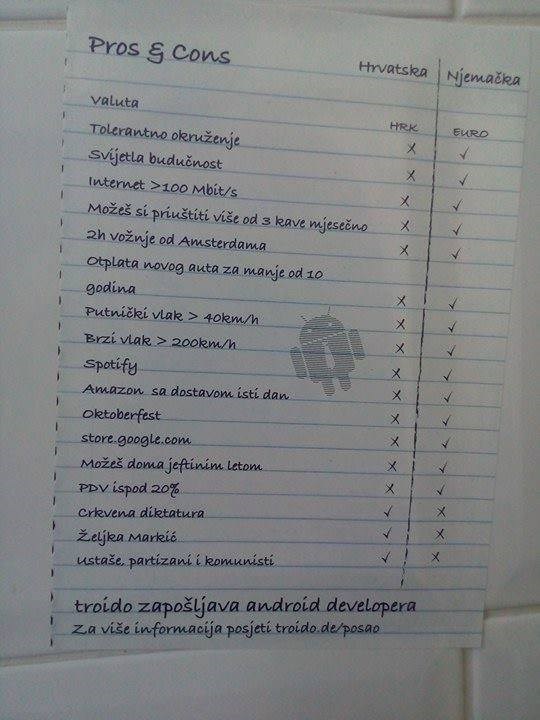 Pros & Cons
Hrvatska Njemačka
Valuta HRK EURO
Tolerantno okruženje x ✓
Svijetla budučnost x ✓
Internet >100 Mbit/s x ✓
Možeš si priuštiti više od 3 kave mjesečno x ✓
2h vožnje od Amsterdama x ✓
Otplata novog auta za manje od 10
godina x ✓
Putnički vlak > 40km/h x ✓
Brzi vlak > 200km/h x ✓
Spotify x ✓
Amazon sa dostavom isti dan x ✓
Oktoberfest x ✓
store.google.com x ✓
Možeš doma jeftinim letom x ✓
PDV ispod 20% x ✓
Crkvena diktatura ✓ x
Željka Markić ✓ x
Ustaše, partizani i komunisti ✓ x
troido zapošljava android developera
Za više informacija posjeti troido.de/posao